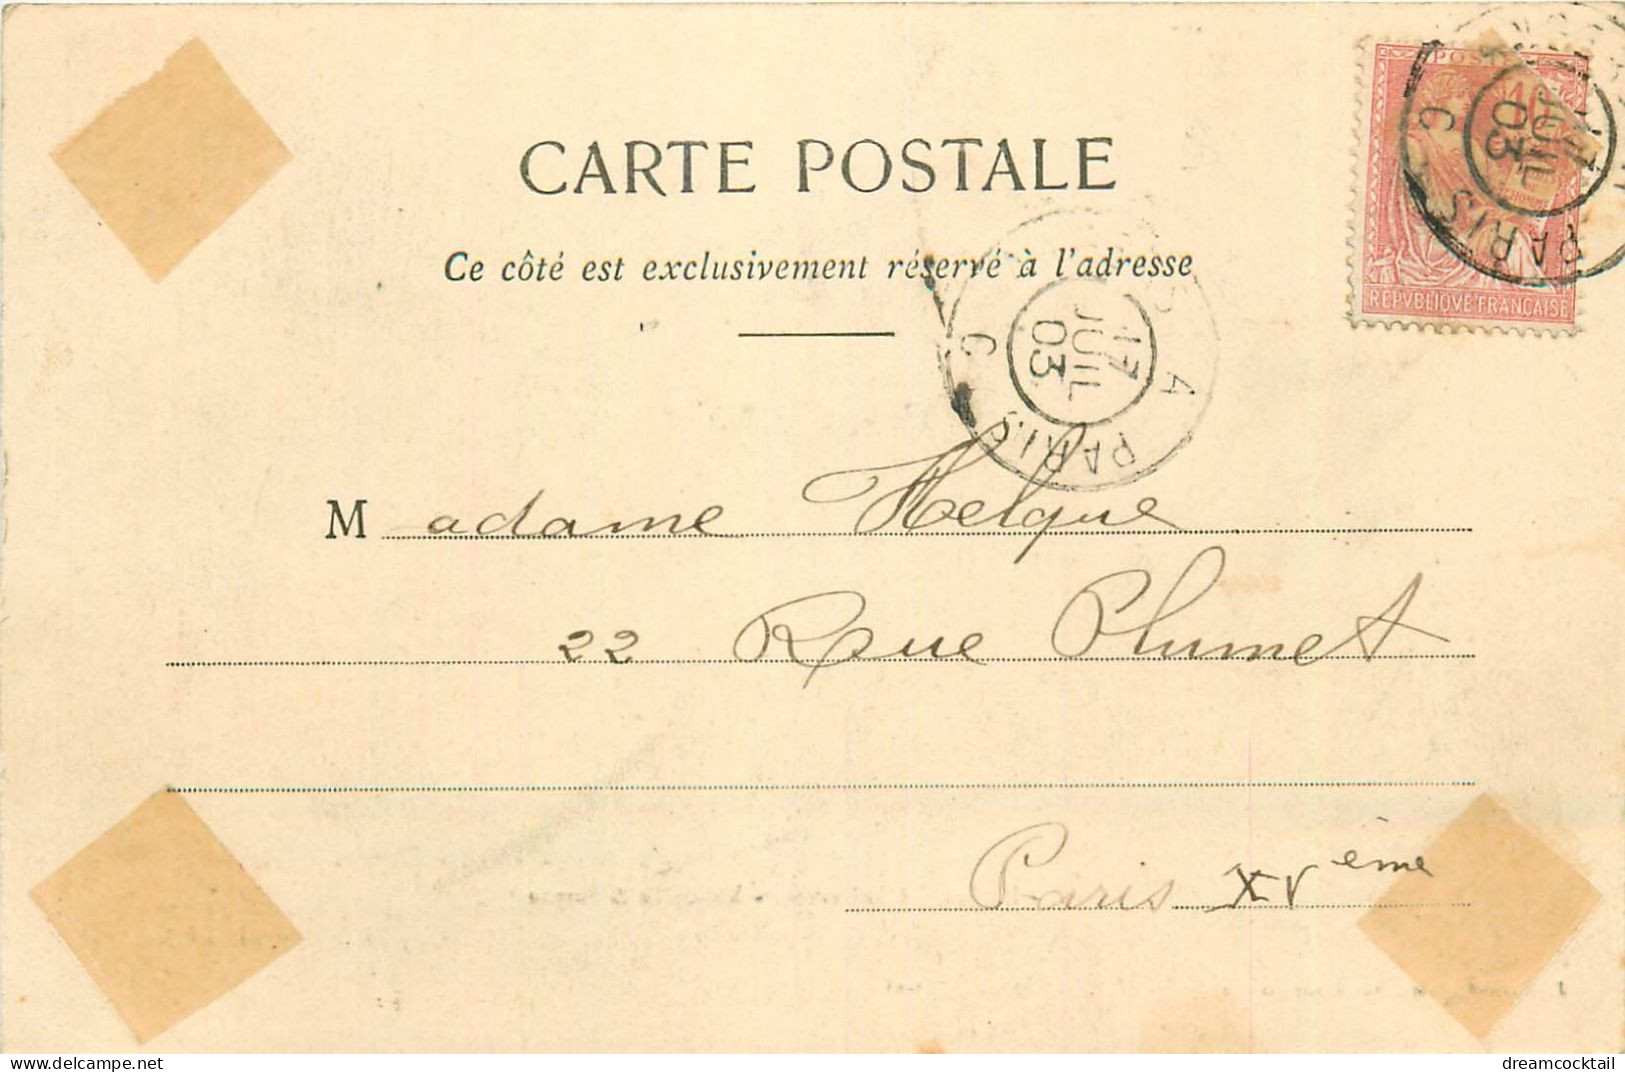 CARTE POSTALE
Ce côté est exclusivement réservé à l'adresse
POSTES
10
REPVBLIQVE FRANÇAISE
PARIS
17
JUIL
03
C
A PARIS
17
JUIL
03
C
Madame Helque
22 Rue Plumet
Paris XVème
www.delcampe.net
dreamcocktail